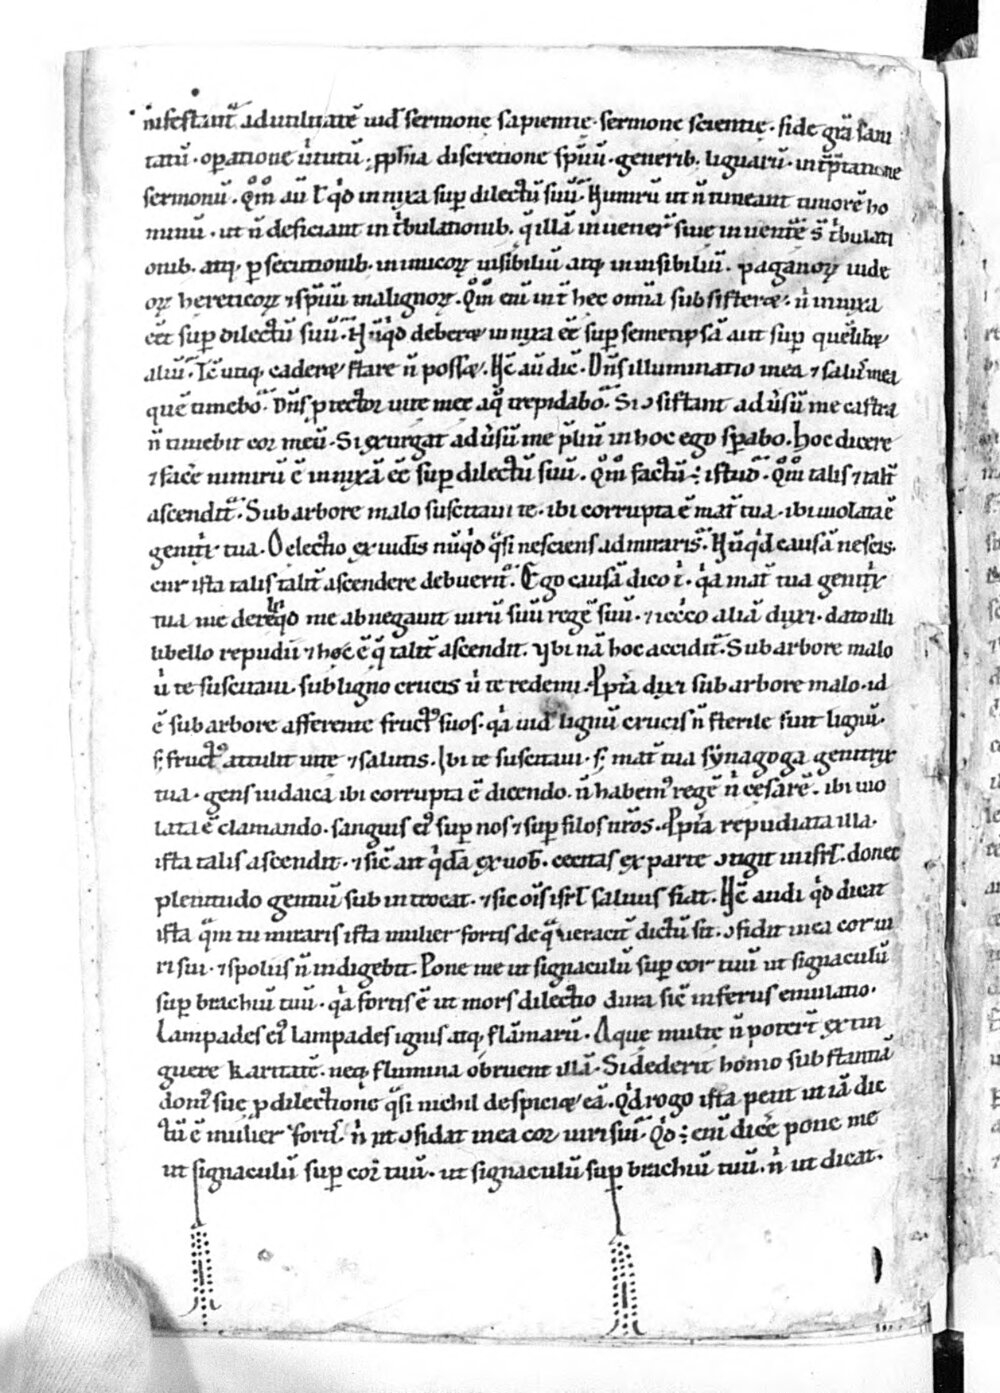 infestant᷎ ad utilitatē uid̄ sermone sapientie · sermone scientie · fide gr̄a sani
tatū · oꝑatione ūtutū · ꝓph̄ia discretione sp̄uū · generib; linguarū · int̄p̄tatione
sermonū · Qm̄ aū l' qͥd innixa suꝑ dilectū suū᷎ Nimirū ut n̄ timeant timorē ho
minū · ut n̄ deficiant in tͥbulationib; q̄ illā inuener̄ siue in uentē s̄ tͥbulati
onib; atq; ꝑsecutionib; inimicoꝝ uisibiliū atq; inuisibiliū · paganoꝝ iude
oꝝ hereticoꝝ ⁊ sp̄uū malignoꝝ · Qm̄ eni᷎ int̄ hec omīa subsistere᷎ · nͥ innixa
eēt suꝑ dilectū suū᷎ Nūqͥd debere᷎ innixa eē suꝑ semetipsā aut suꝑ quēlibę
aliū᷎ Ic̄ utiq; cadere᷎ stare n̄ posset · Hc̄ aū dic̄ · Dn̄s illuminatio mea ⁊ salus mea
quē timebo᷎ Dn̄s ꝓtector uite mee a qͦ trepidabo᷎ Si ɔsistant aduͥsū me castra
n̄ timebit cor meū · Si exurgat aduͥsū me p̄liū in hoc ego sꝑabo · Hoc dicere
⁊ facͤe nimirū ē innixā eē suꝑ dilectū suū · Qm̄ factū ÷ istud᷎ · Qm̄ talis ⁊ talit̄
ascendit᷎ · Sub arbore malo suscitaui te · ibi corrupta ē mat̄ tua · ibi uiolata ē
genitͥx tua · O electio ex iud̄is nūqͥd qͣsi nesciens admiraris᷎ Nūqͥd causā nescis ·
cur ista talis talit̄ ascendere debuerit᷎ · Ego causā dico t̄ · qͥa mat̄ tua genitͥx
tua me dereliqͥd me abnegauit uirū suū regē suū · ⁊ iccͥco aliā duxi · dato illi
libello repudii ⁊ hęc ē q̄ talit̄ ascendit · Vbi nā hoc accidit᷎ Sub arbore malo
uͦ te suscitaui · sub ligno crucis uͦ te redemi · Ppt̄a dixi sub arbore malo · id
ē sub arbore afferente fructꝰ suos · qͥa uid̄ lignū crucis n̄ sterile fuit lignū ·
s; fructꝰ attulit uite ⁊ salutis · Ibi te suscitaui · s; mat̄ tua synagoga genitrix
tua · gens iudaica ibi corrupta ē dicendo · n̄ habemꝰ regē nͥ cesarē · ibi uio
lata ē clamando · sanguis eiꝰ suꝑ nos ⁊ suꝑ filos nr̄os · Ppt̄a repudiata illa ·
ista talis ascendit · ⁊ sic̄ ait qͥdā ex uob̄ · cecitas ex parte ɔtigit in isr̄l · donec
plenitudo gentiū subintroeat · ⁊ sic oīs isr̄l saluus fiat · Hc̄ audi qͥd dicat
ista qͣm tu miraris ista mulier fortis de qͣ ueracit̄ dictū sit · ɔfidit in ea cor ui
ri sui · ⁊ spoliis n̄ indigebit · Pone me ut signaculū suꝑ cor tuū ut signaculū
suꝑ brachiū tuū · qͥa fortis ē ut mors dilectio dura sic̄ inferus emulatio ·
Lampades eiꝰ lampades ignis atq; flāmarū · Aque multe n̄ poterīt extin
guere karitatē · neq; flumina obruent illā · Si dederit homo substantiā
domꝰ suę ꝓ dilectione qͣsi nichil despicię eā · Qd̄ rogo ista petit in iā dic
tū ē mulier fortis · nͥ ut ɔfidat in ea cor uiri sui᷎ · Qͥd ÷ eni᷎ dicͤe pone me
ut signaculū suꝑ cor tuū · ut signaculū suꝑ brachiū tuū · nͥ ut dicat ·